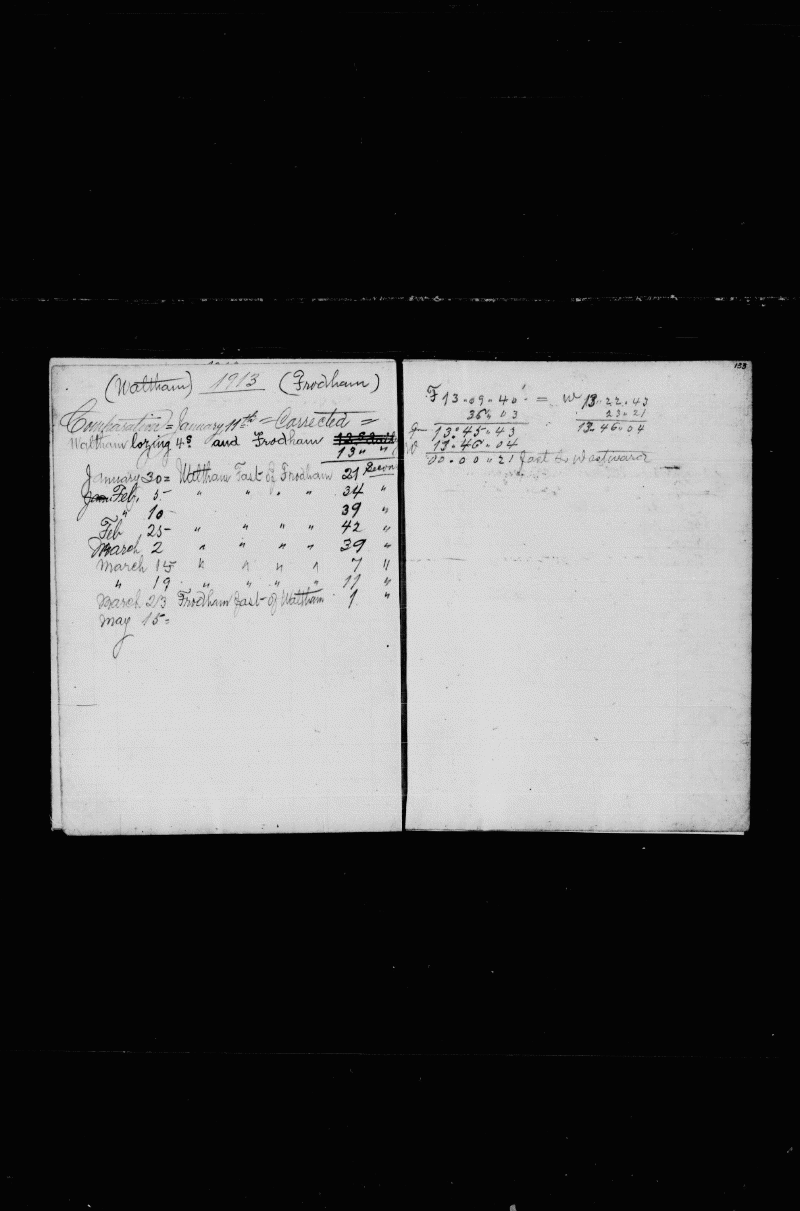 (Waltham) 1913 (Frodham)
Comparation = January 11th = Corrected =
Waltham lozing 4s and Frodham
13 " "
January 30 = Waltham Fast of Frodham 21 Second
Feb, 5 - " " " " 34 "
" 10 39 "
Feb 25 - " " " " 42 "
March 2 " " " " 39 "
March 15 " " " " 7 "
" 19 " " " " 11 "
March 23 Frodham fast of Waltham 1 "
May 15 =
133
F 13.09.40 = W 13.22.43
36.03 23.21
13.45.43 13.46.04
W 13.46.04
00.00.21 fast to Westward